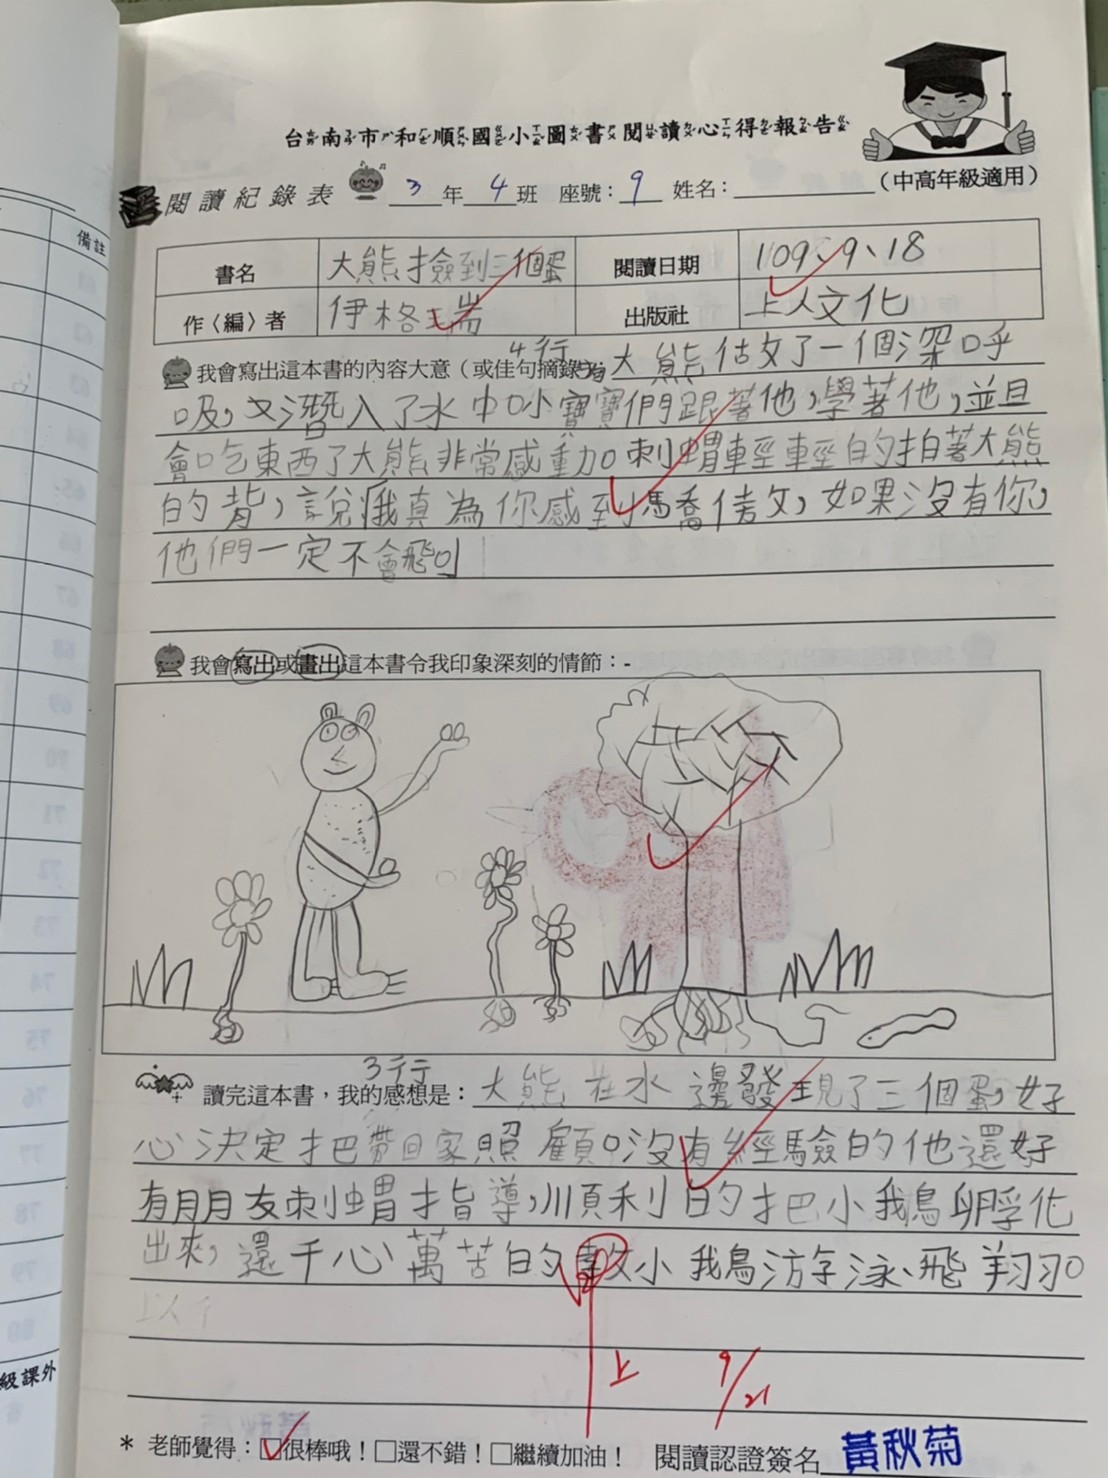 台南市和順國小圖書閱讀心得報告
閱讀紀錄表 3年4班 座號：9 姓名： （中高年級適用）
書名 大熊撿到三個蛋 閱讀日期 109、9、18
作〈編〉者 伊格 瑞 出版社 上人文化
4行
我會寫出這本書的內容大意（或佳句摘錄 大熊估攵了一個深呼
吸，又潛入了水中，寶寶們跟著他，學著他，並且
會吃東西了大熊非常感動。刺蝟輕輕的拍著大熊
的背，說我真為你感到馬喬傲，如果沒有你，
他們一定不會飛。
我會寫出或畫出這本書令我印象深刻的情節：-
3行
讀完這本書，我的感想是：大熊在水邊發現了三個蛋，好
心決定把帶回家照顧。沒有經驗的他還好
有朋友刺蝟指導，順利的把小鵝孵化
出來，還千心萬苦的教小鵝游泳、飛翔。
以
上 9/21
* 老師覺得：☑很棒哦！□還不錯！□繼續加油！ 閱讀認證簽名 黃秋菊
備註
65
66
67
68
69
70
71
72
73
74
75
76
77
78
79
80
級課外